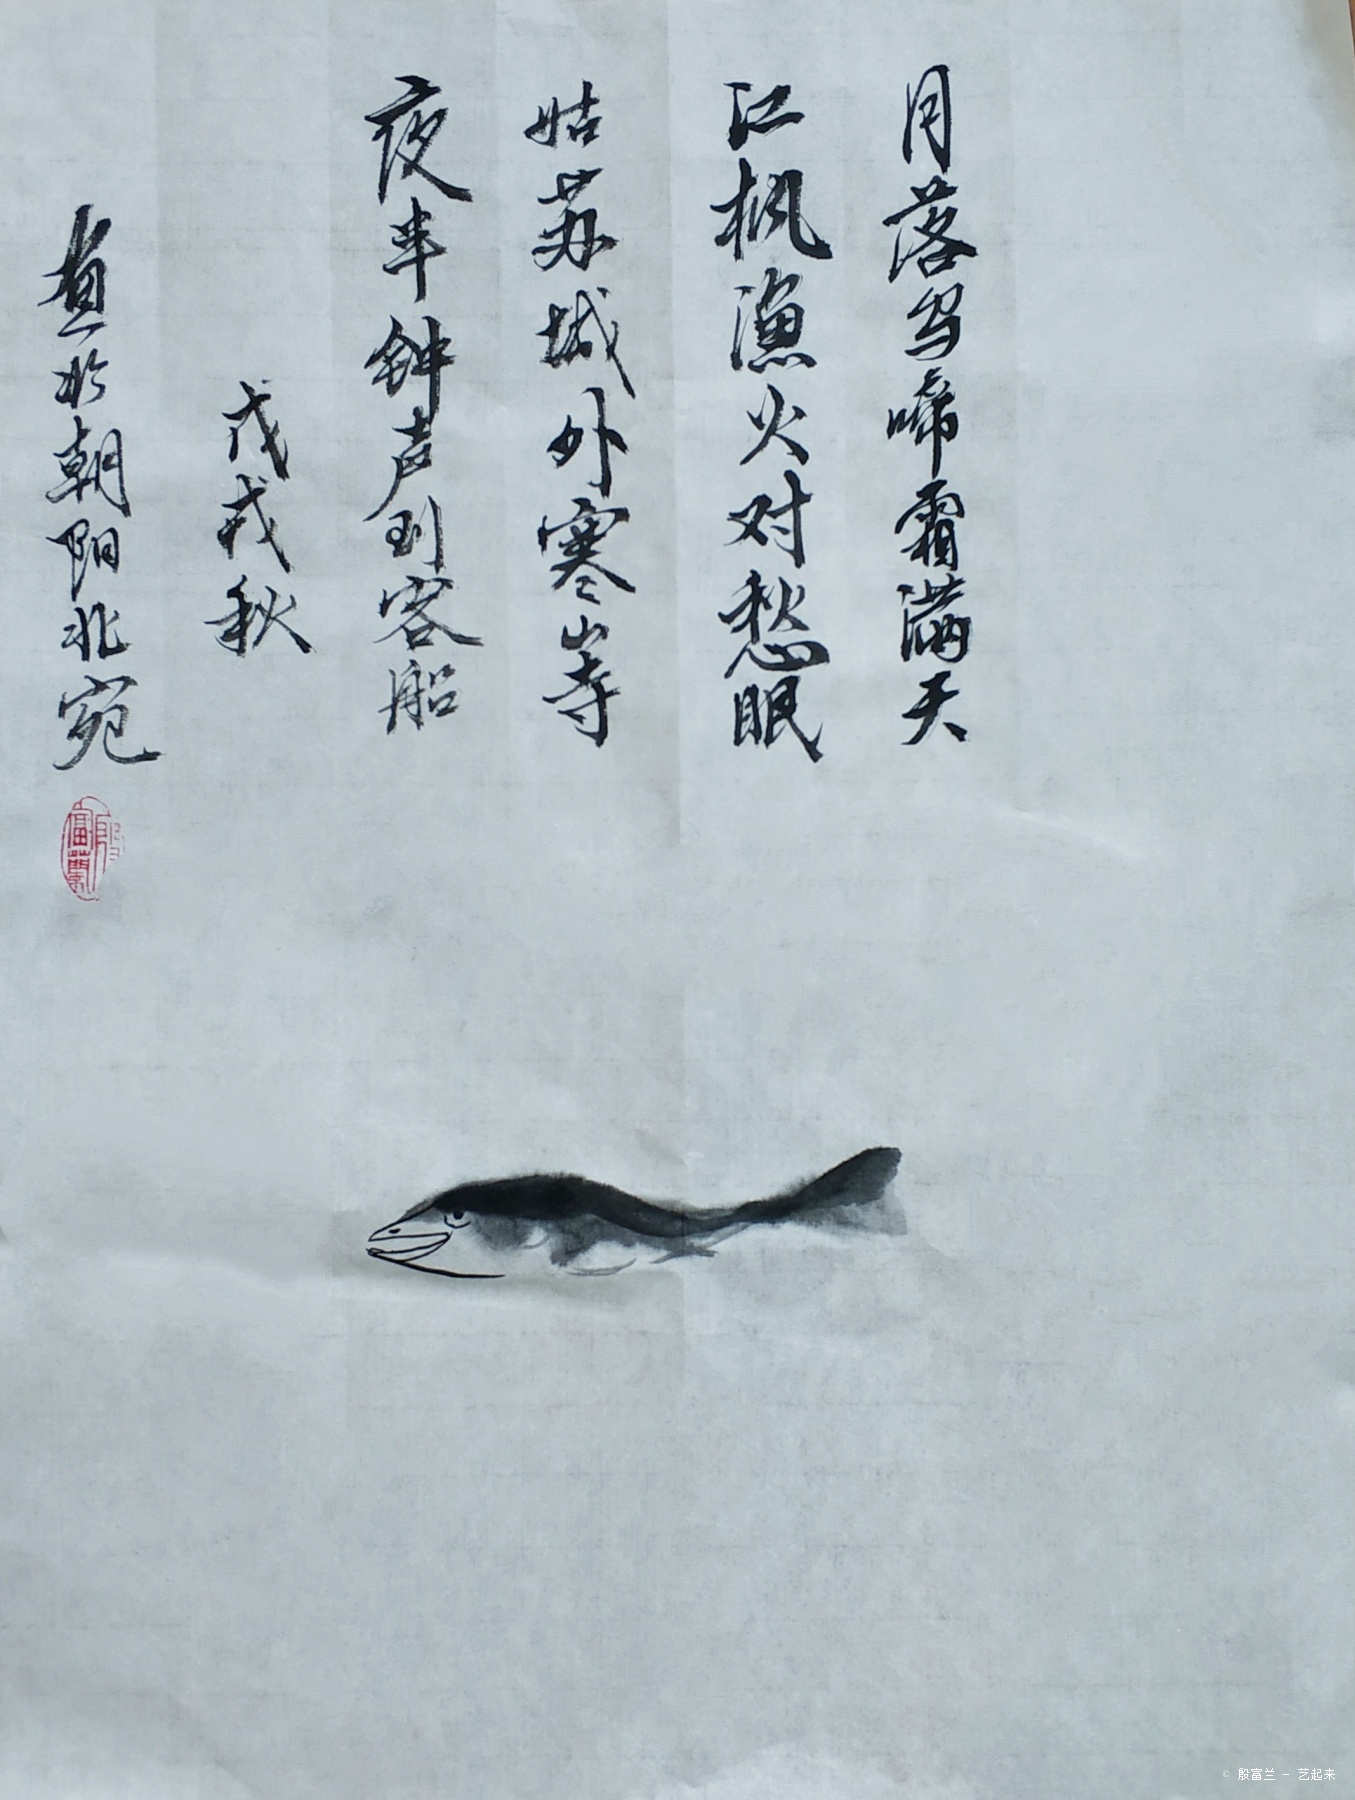 月落乌啼霜满天
江枫渔火对愁眠
姑苏城外寒山寺
夜半钟声到客船
戊戌秋
直于朝阳北宛
殷富兰
© 殷富兰 - 艺起来